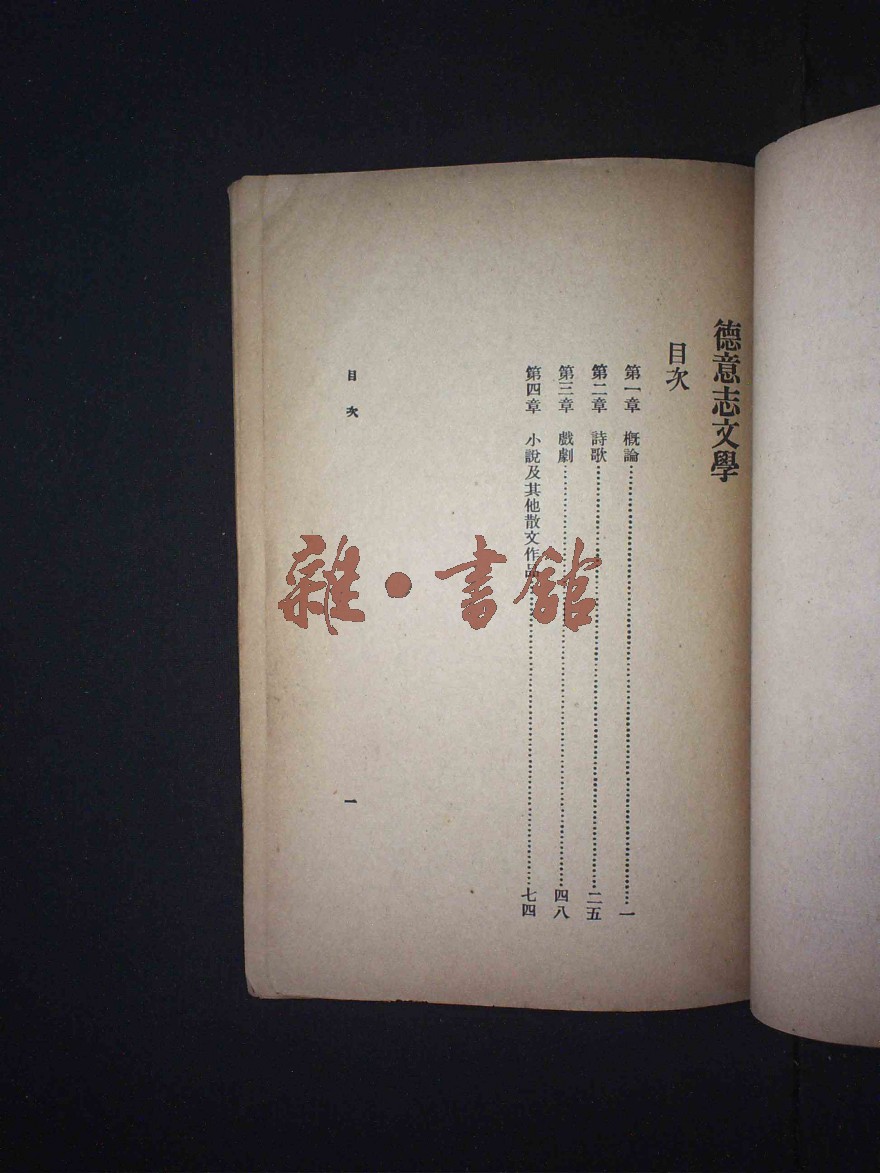 德意志文學
目次
第一章　概論……一
第二章　詩歌……二五
第三章　戲劇……四八
第四章　小說及其他散文作品……七四
目次
一
雜·書館